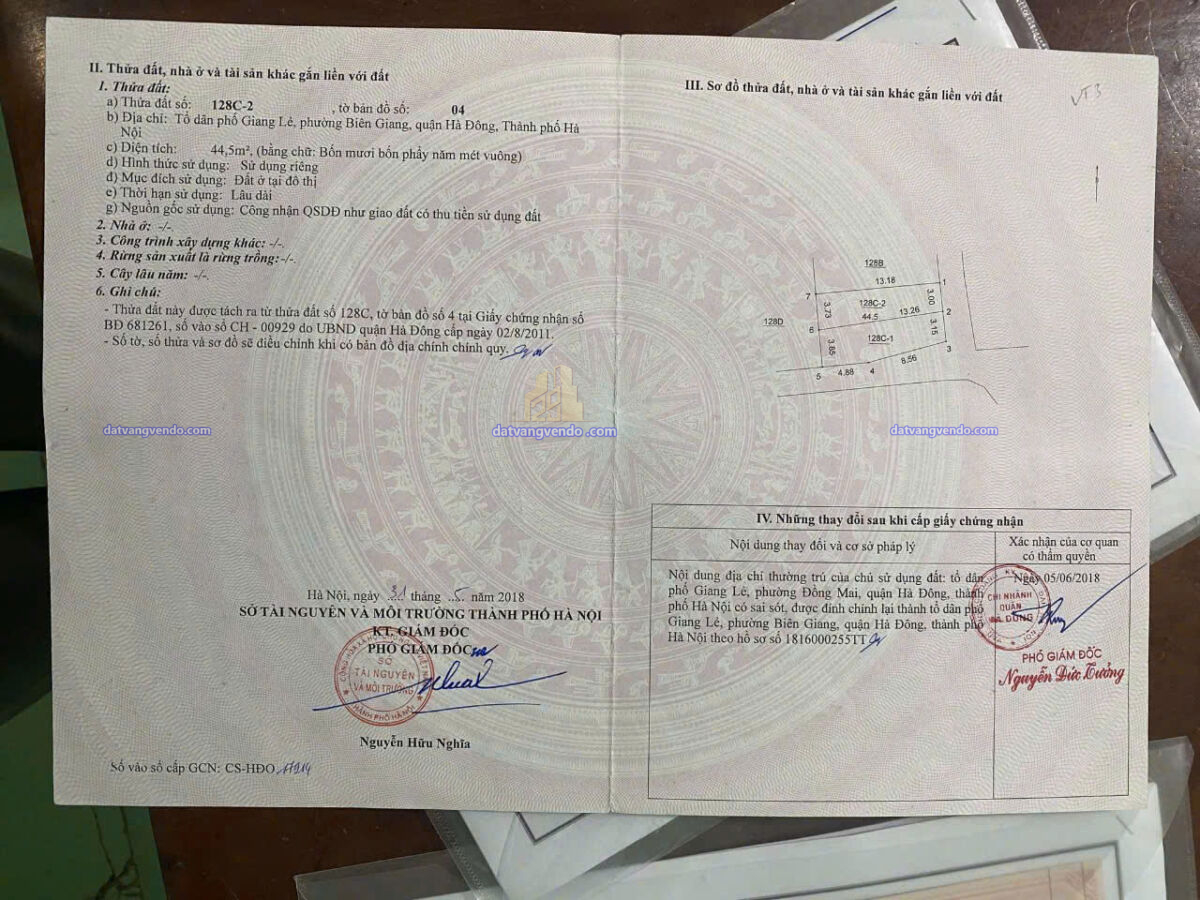 II. Thửa đất, nhà ở và tài sản khác gắn liền với đất
1. Thửa đất:
a) Thửa đất số: 128C-2 , tờ bản đồ số: 04
b) Địa chỉ: Tổ dân phố Giang Lẻ, phường Biên Giang, quận Hà Đông, Thành phố Hà
Nội
c) Diện tích: 44,5m², (bằng chữ: Bốn mươi bốn phẩy năm mét vuông)
d) Hình thức sử dụng: Sử dụng riêng
đ) Mục đích sử dụng: Đất ở tại đô thị
e) Thời hạn sử dụng: Lâu dài
g) Nguồn gốc sử dụng: Công nhận QSDĐ như giao đất có thu tiền sử dụng đất
2. Nhà ở: -/-.
3. Công trình xây dựng khác: -/-.
4. Rừng sản xuất là rừng trồng:-/-.
5. Cây lâu năm: -/-.
6. Ghi chú:
- Thửa đất này được tách ra từ thửa đất số 128C, tờ bản đồ số 4 tại Giấy chứng nhận số
BĐ 681261, số vào sổ CH - 00929 do UBND quận Hà Đông cấp ngày 02/8/2011.
- Số tờ, số thửa và sơ đồ sẽ điều chỉnh khi có bản đồ địa chính chính quy.
datvangvendo.com
datvangvendo.com
datvangvendo.com
Hà Nội, ngày 31 tháng 5 năm 2018
SỞ TÀI NGUYÊN VÀ MÔI TRƯỜNG THÀNH PHỐ HÀ NỘI
KT. GIÁM ĐỐC
PHÓ GIÁM ĐỐC
SỞ
TÀI NGUYÊN
VÀ MÔI TRƯỜNG
THÀNH PHỐ HÀ NỘI
Nguyễn Hữu Nghĩa
Số vào sổ cấp GCN: CS-HĐO
III. Sơ đồ thửa đất, nhà ở và tài sản khác gắn liền với đất
VT3
128B
13.18
1
7
3.00
3.73
128C-2
44.5
13.26
2
128D
6
3.15
128C-1
3.85
3
8.56
5
4.88
4
IV. Những thay đổi sau khi cấp giấy chứng nhận
Nội dung thay đổi và cơ sở pháp lý
Xác nhận của cơ quan
có thẩm quyền
Nội dung địa chỉ thường trú của chủ sử dụng đất: tổ dân
phố Giang Lẻ, phường Đồng Mai, quận Hà Đông, thành
phố Hà Nội có sai sót, được đính chính lại thành tổ dân phố
Giang Lẻ, phường Biên Giang, quận Hà Đông, thành phố
Hà Nội theo hồ sơ số 1816000255TT
Ngày 05/06/2018
CHI NHÁNH
QUẬN
HÀ ĐÔNG
PHÓ GIÁM ĐỐC
Nguyễn Đức Tưởng